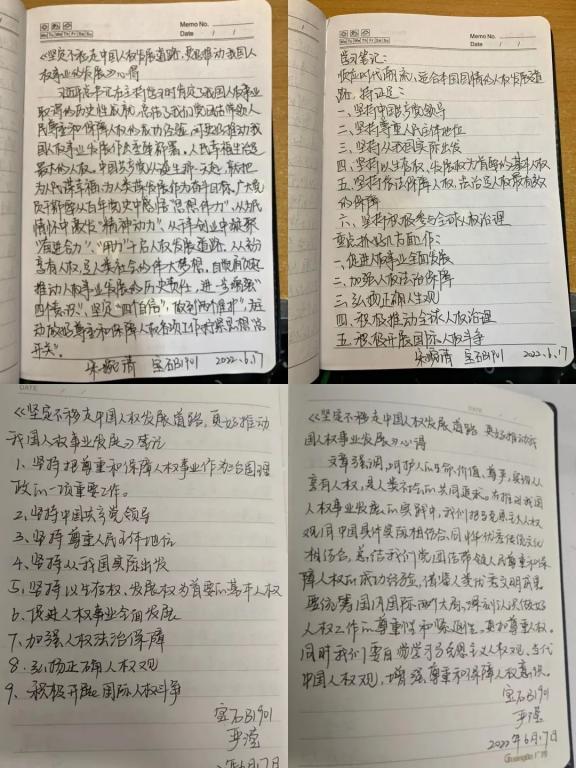 Memo No.
Mo Tu We Th Fr Sa Su
Date / /
《坚定不移走中国人权发展道路,更好推动我国人
权事业的发展》心得
取得的历史性成就,总结了我们党团结带领人
民尊重和保障人权的成功经验,
国人权事业发展作出
最大的人权。中国共产党从诞生那一天起,就把
为人民谋幸福,为人类谋发展作为奋斗目标。广大党
员干部要从百年党史中感悟“思想伟力”,从为民
情怀中激发“精神动力”,
享有人权,是人类社会的伟大梦想。
推动人权事业发展的历史责任,进一步增强“
四个意识”、坚定“四个自信”、做到“两个维护”,
动做好尊重和保障人权各项工作
开关”。
宝石B1901 2022.6.17
Memo No.
Mo Tu We Th Fr Sa Su
Date / /
学习笔记:
顺应时代潮流,适合本国国情的人权发展道
路,特征是:
一、坚持中国共产党领导
二、坚持尊重人民主体地位
三、坚持从我国实际出发
四、坚持以生存权、发展权为首要的基本人权
五、坚持依法保障人权,
的保障
六、坚持积极参与全球人权治理
要点抓好几方面工作:
一、促进人权事业全面发展
二、加强人权法治保障
三、弘扬正确人生观
四、积极推动全球人权治理
五、积极开展国际人权斗争
宝石B1901 2022.6.17
DATE
《坚定不移走中国人权发展道路,更好推动
我国人权事业发展》笔记
1、坚持把尊重和保障人权事业作为治国理
政的一项重要工作。
2、坚持中国共产党领导
3、坚持尊重人民主体地位
4、坚持从我国实际出发
5、坚持以生存权、发展权为首要的基本人权
6、促进人权事业全面发展
7、加强人权法治保障
8、弘扬正确人权观
9、积极开展国际人权斗争
宝石B1901
严滢
年6月17日
DATE
《坚定不移走中国人权发展道路 更好推动我
国人权事业发展》心得
文章强调,呵护人的生命、价值、尊严,实现人人
享有人权,是人类社会的共同追求。在推动我国
人权事业发展的实践中,我们把马克思主义人权
观同中国具体实际相结合、同中华优秀传统文化
相结合,总结我们党团结带领人民尊重和保
障人权的成功经验,借鉴人类优秀文明成果
要统筹国内国际两个大局,深刻认识做好
人权工作的重要性和紧迫性,
同时我们要自觉学习马克思主义人权观、当代
中国人权观,增强尊重和保障人权意识。
宝石B1901
严滢
2022年6月17日
Guangbo